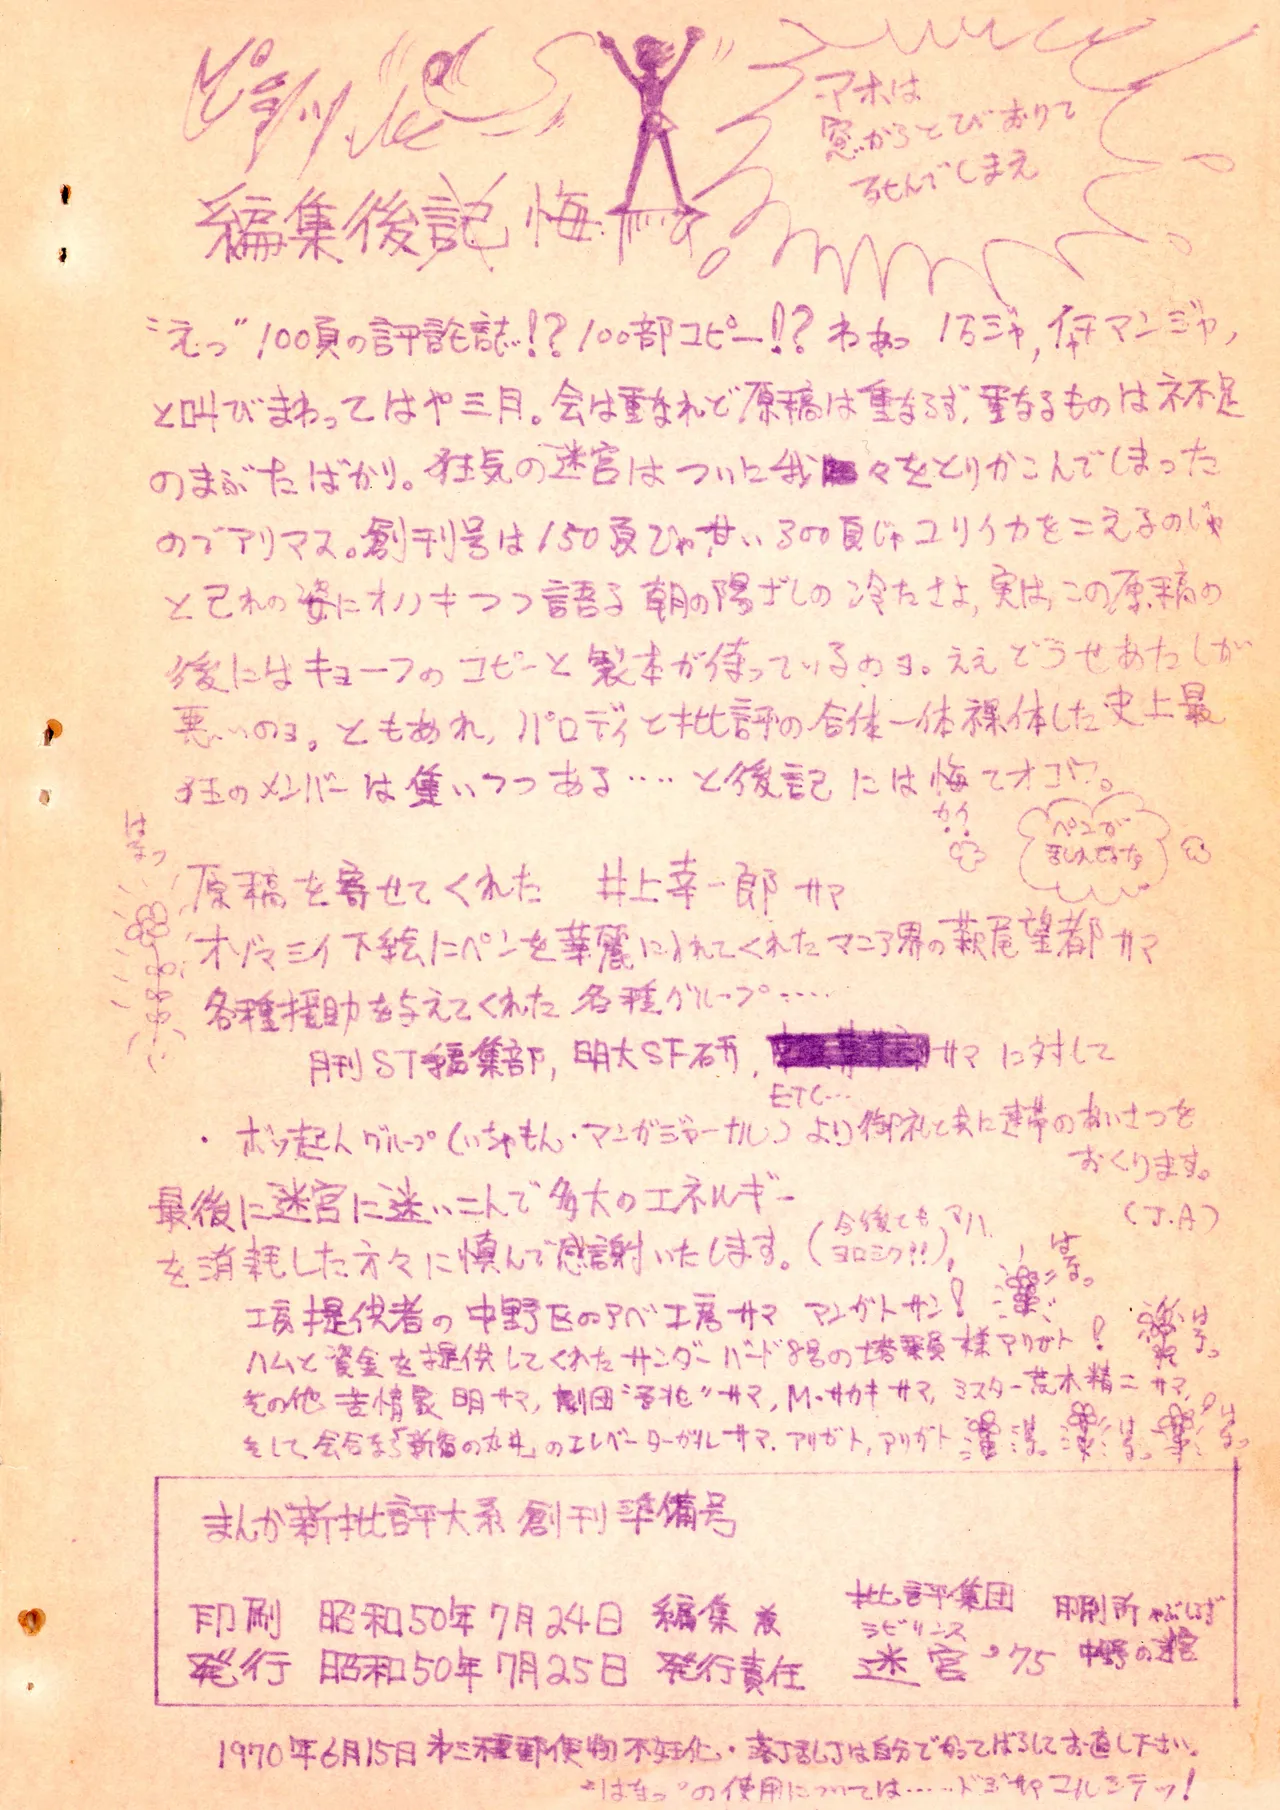 アホは
窓からとびおりて
死んでしまえ
編集後記 悔
"えっ"100頁の評論誌!?100部コピー!?わあっ 1万ジャ,
と叫びまわってはや三月。会は重なれど原稿は重ならず,重なるものはネ不足
のまぶたばかり。狂気の迷宮はついに我々をとりかこんでしまった
のでアリマス。創刊号は150頁じゃ,せい300頁じゃユリイカをこえるのじゃ
と己れの姿にオノノキつつ語る朝の陽ざしの冷たさよ,実は,この原稿の
後にはキョーフのコピーと製本が待っているのヨ。ええどうせあたしが
悪いのヨ。ともあれ,パロディと批評の合体一体裸体した史上最
狂のメンバーは集いつつある‥‥と後記には悔てオコウ。
カイ
ペンが
はなっ
原稿を寄せてくれた 井上幸一郎サマ
オゾマシイ下絵にペンを華麗に入れてくれたマニア界の萩尾望都サマ
各種援助を与えてくれた各種グループ‥‥
月刊ST編集部,明大SF研, サマに対して
ETC…
・ボッ起人グループ(いちゃもん・マンガジャーナル)より御礼と共に連帯のあいさつを
おくります。
(J.A)
最後に迷宮に迷いこんで多大のエネルギー
を消耗した方々に慎んで感謝いたします。(今後ともヨロシク!!)
はなっ
工房提供者の中野区のアベ工房サマ アンガトサン!
ハムと資金を提供してくれたサンダーバード8号の搭乗員様アリガト!
はなっ
その他 苦情家 明サマ,劇団"サマ,M・サカキサマ,ミスター荒木精二サマ,
そして会合を「新宿の丸井」のエレベーターガールサマ.アリガト,アリガト
まんが新批評大系創刊準備号
印刷 昭和50年7月24日 編集兼
発行 昭和50年7月25日 発行責任
批評集団
ラビリンス
迷宮'75
印刷所 やぶしらず
中野の迷宮
1970年6月15日 オ三種郵便物不妊化・落丁乱丁は自分でかってばらしてお直し下さい。
"はなっ"の使用については‥‥